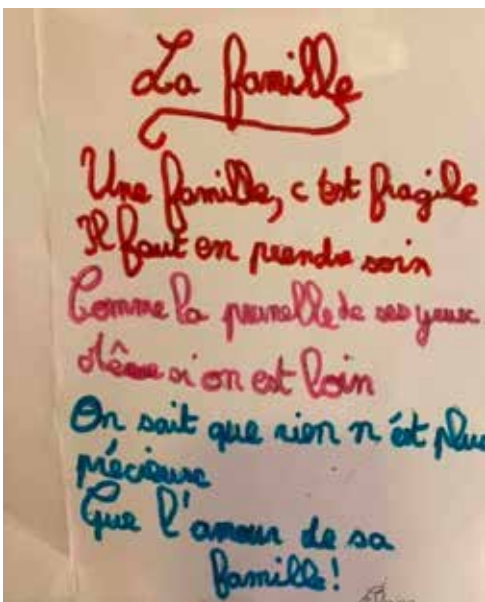 La famille
Une famille, c'est fragile
Il faut en prendre soin
Comme la prunelle de ses yeux
Même si on est loin
On sait que rien n'est plus
précieux
Que l'amour de sa
famille!